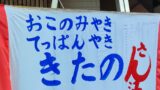 おこのみやき
てっぱんやき
きたの
さん